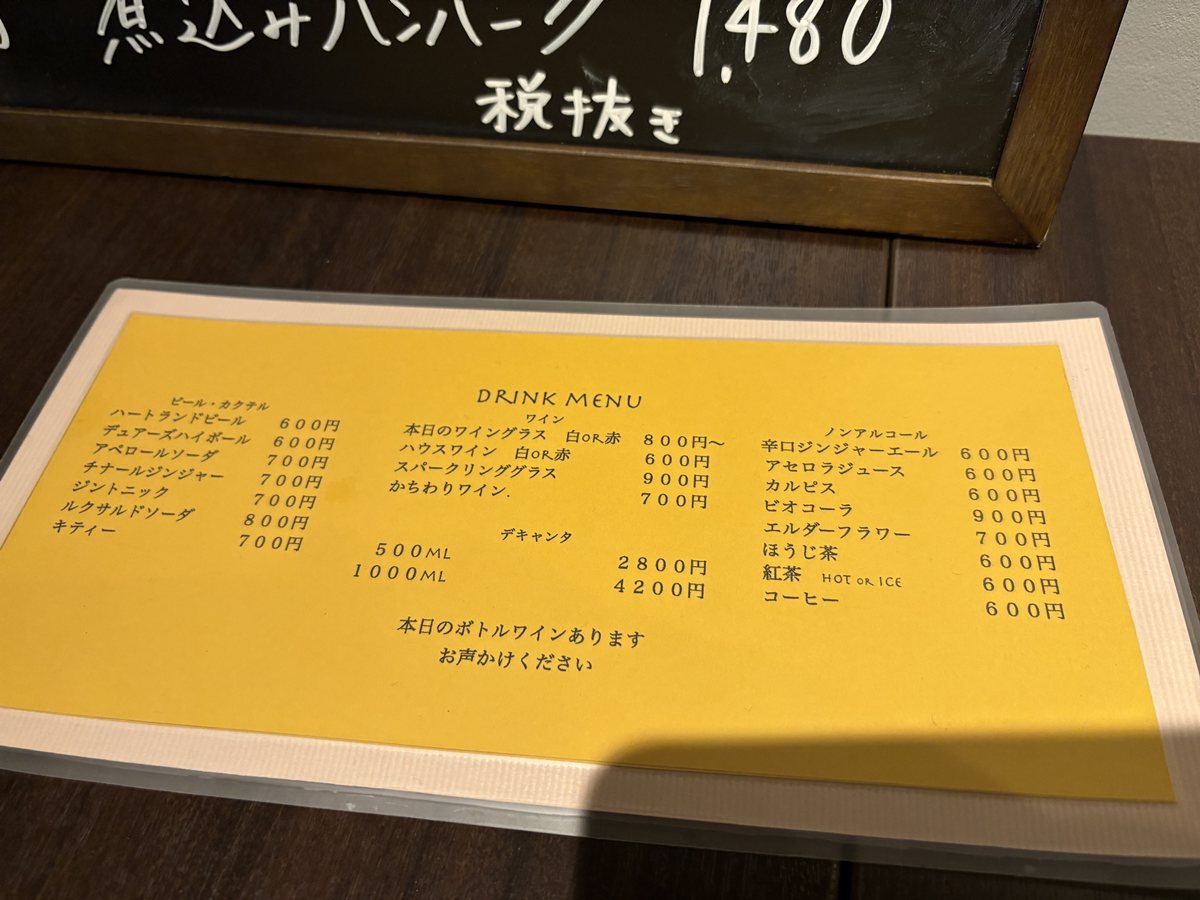 煮込みハンバーグ 1,480
税抜き
DRINK MENU
ビール・カクテル
ハートランドビール 600円
デュアーズハイボール 600円
アペロールソーダ 700円
チナールジンジャー 700円
ジントニック 700円
ルクサルドソーダ 800円
キティー 700円
ワイン
本日のワイングラス 白OR赤 800円～
ハウスワイン 白OR赤 600円
スパークリンググラス 900円
かちわりワイン. 700円
デキャンタ
500ML 2800円
1000ML 4200円
本日のボトルワインあります
お声かけください
ノンアルコール
辛口ジンジャーエール 600円
アセロラジュース 600円
カルピス 600円
ビオコーラ 900円
エルダーフラワー 700円
ほうじ茶 600円
紅茶 HOT OR ICE 600円
コーヒー 600円